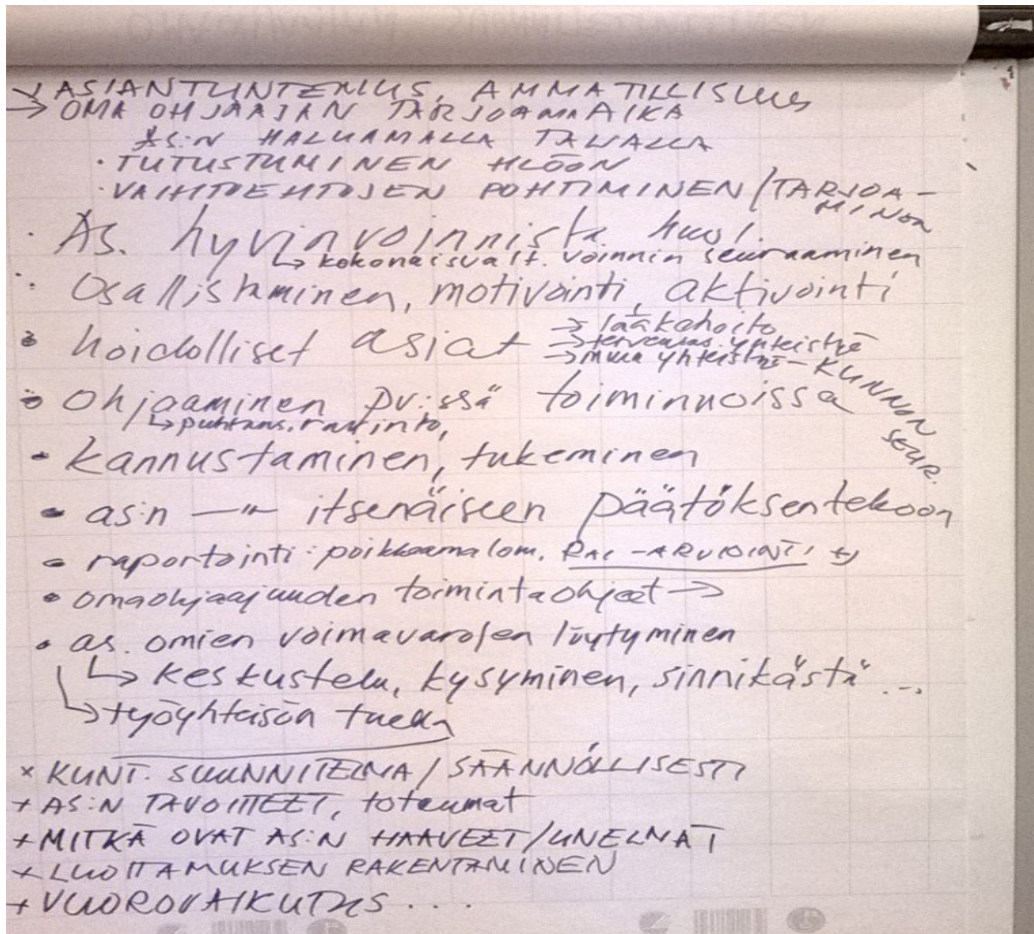 → ASIANTUNTEMUS, AMMATILLISUUS
→ OMA OHJAAJAN TARJOAMA AIKA
AS:N HALUAMALLA TAVALLA
· TUTUSTUMINEN HLÖÖN
· VAIHTOEHTOJEN POHTIMINEN/TARJOA-
MINEN
· As. hyvinvoinnista huol.
↳ kokonaisvalt. voinnin seuraaminen
· Osallistaminen, motivointi, aktivointi
· hoidolliset asiat → lääkehoito
→ terveyas. yhteistyö
→ muu yhteistyö - KUNNON
SEUR.
· ohjaaminen pv:ssä toiminnoissa
↳ puhtaus, ravinto,
- kannustaminen, tukeminen
- as:n —"— itsenäiseen päätöksentekoon
- raportointi: poikkeamalom. RAI-ARVIOINTI
· omaohjaajuuden toimintaohjeet →
· as. omien voimavarojen löytyminen
↳ keskustelu, kysyminen, sinnikästä ...
↳ työyhteisön tuella
× KUNT. SUUNNITELMA/SÄÄNNÖLLISESTI
+ AS:N TAVOITTEET, toteumat
+ MITKÄ OVAT AS:N HAAVEET/UNELMAT
+ LUOTTAMUKSEN RAKENTAMINEN
+ VUOROVAIKUTUS ...